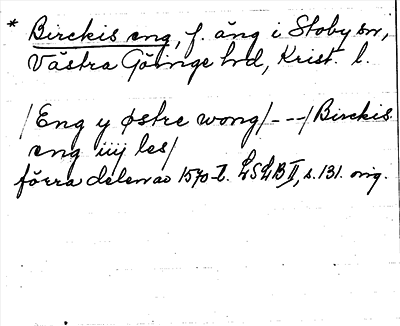 * Birckis eng, f. äng i Stoby sn,
Västra Göinge hd, Krist. l.
/Eng y østre wong/---/Birckis
eng iiij les/
förra delen av 1570-t. LSLB II, s. 131. orig.